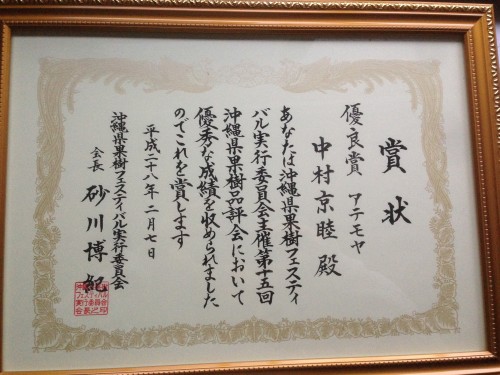 賞状
優良賞 アテモヤ
中村京睦 殿
あなたは沖縄県果樹フェスティ
バル実行委員会主催第十五回
沖縄県果樹品評会において
優秀な成績を収められました
のでこれを賞します
平成二十八年二月七日
沖縄県果樹フェスティバル実行委員会
会長 砂川博紀